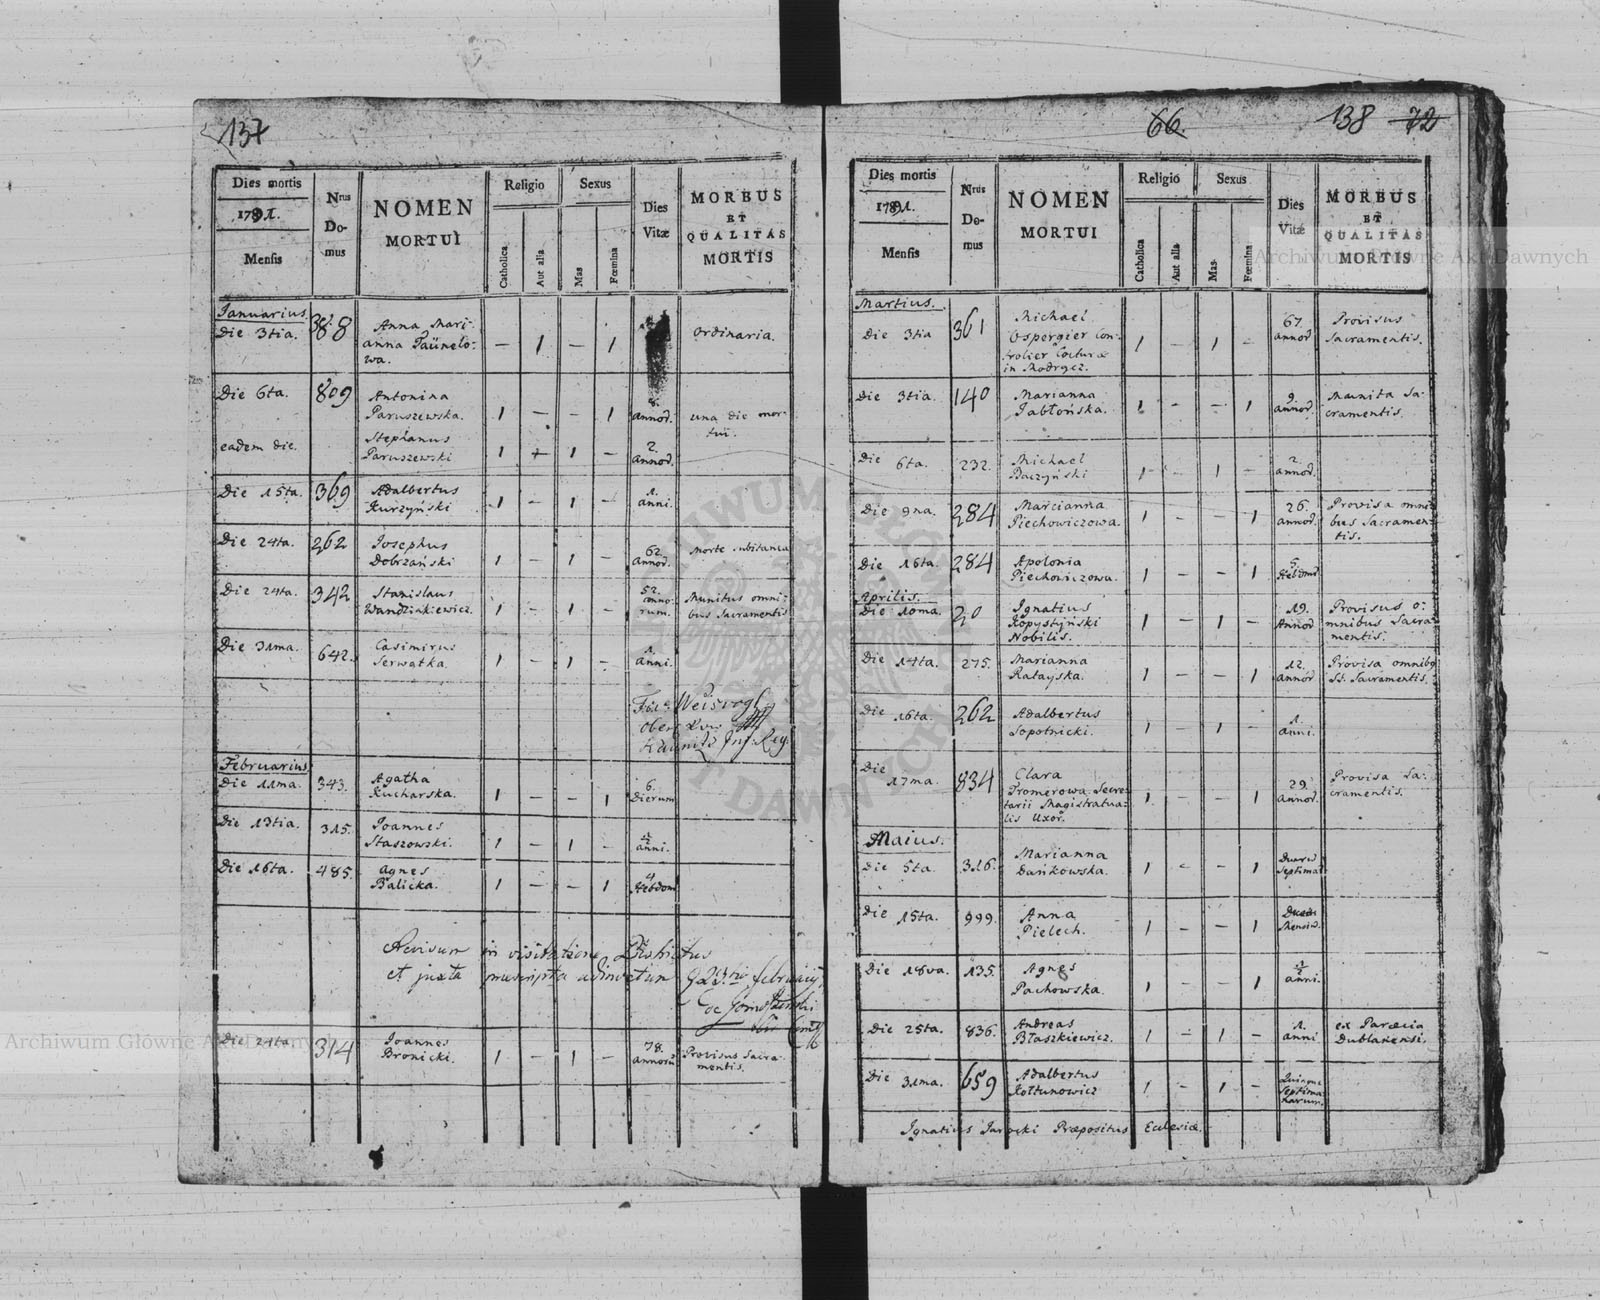 137
Dies mortis
1791.
Mensis
Nrus
Do-
mus
NOMEN
MORTUI
Religio
Catholica
Aut alia
Sexus
Mas
Fœmina
Dies
Vitæ
MORBUS
ET
QUALITAS
MORTIS
Januarius.
Die 3tia. 388 Anna Mari-
anna
wa. — 1 — 1 ordinaria.
Die 6ta. 809 Antonina
Paruszewska. 1 — — 1 8. annoᵈ. una die mor-
tui.
eadem die. Stephanus
Paruszewski 1 + 1 — 2. annoᵈ.
Die 15ta. 369 Adalbertus
Kurzyński 1 — 1 — 1. anni.
Die 24ta. 262 Josephus
Dobrzański 1 — 1 — 62. annoᵈ. Morte subitanea
Die 24ta. 342 Stanislaus
Wandziakiewicz. 1 — 1 — 52. anno-
rum. Munitus omni-
bus Sacramentis
Die 31ma. 642. Casimirus
Serwatka. 1 — 1 — 1. anni.
Februarius
Die 11ma. 343. Agatha
Kucharska. 1 — — 1 6. Dierum
Die 13tia. 315. Joannes
Staszowski. 1 — 1 — ½ anni.
Die 16ta. 485. Agnes
Balicka. 1 — — 1 4 Hebdom
Revisum in visitatione Districtus
et juxta
Die 21ta. 314 Joannes
Bronicki. 1 — 1 — 78. annorū Provisus Sacra-
mentis.
66. 138 72
Dies mortis
1791.
Mensis
Nrus
Do-
mus
NOMEN
MORTUI
Religio
Catholica
Aut alia
Sexus
Mas
Fœmina
Dies
Vitæ
MORBUS
ET
QUALITAS
MORTIS
Martius.
Die 3tia 361 Michael
Ospergier Con-
trolier Cocturæ
in Modrycz. 1 — 1 — 67. annoᵈ Provisus
Sacramentis.
Die 3tia. 140 Marianna
Jabłońska. 1 — — 1 9. annoᵈ. Munita Sa-
cramentis.
Die 6ta. 232. Michael
Baczyński 1 — 1 — 2. annoᵈ.
Die 9na. 284 Marcianna
Piechowiczowa. 1 — — 1 26. annoᵈ. Provisa omni-
bus Sacramen-
tis.
Die 16ta. 284 Apolonia
Piechowiczowa. 1 — — 1 5. Hebdoᵐ
Aprilis.
Die 10ma. 20 Ignatius
Kopystyński
Nobilis. 1 — 1 — 19. Annoᵈ Provisus o-
mnibus Sacra-
mentis.
Die 14ta. 275. Marianna
Ratayska. 1 — — 1 12. annoᵈ Provisa omnibꝯ
SS. Sacramentis.
Die 16ta. 262 Adalbertus
Sopotnicki. 1 — 1 — 1. anni.
Die 17ma. 834 Clara
Promerowa Secre-
tarii Magistratua-
lis Uxor. 1 — — 1 29. annoᵈ. Provisa Sa-
cramentis.
Maius.
Die 5ta. 316. Marianna
Dańkowska. 1 — — 1 Septima
Die 15ta. 999. Anna
Pielech. 1 — — 1
Die 18va. 135. Agnes
Pachowska. 1 — — 1 ½ anni.
Die 25ta. 836. Andreas
Błaszkiewicz. 1 — 1 — 1. anni ex Parœcia
Dublanensi.
Die 31ma. 659 Adalbertus
Kołtunowicz 1 — 1 — Quinque
Septima-
narum.
Ignatius Jarocki Præpositus Ecclesiæ.
Archiwum Główne Akt Dawnych
Archiwum Główne Akt Dawnych
ARCHIWUM GŁÓWNE AKT DAWNYCH